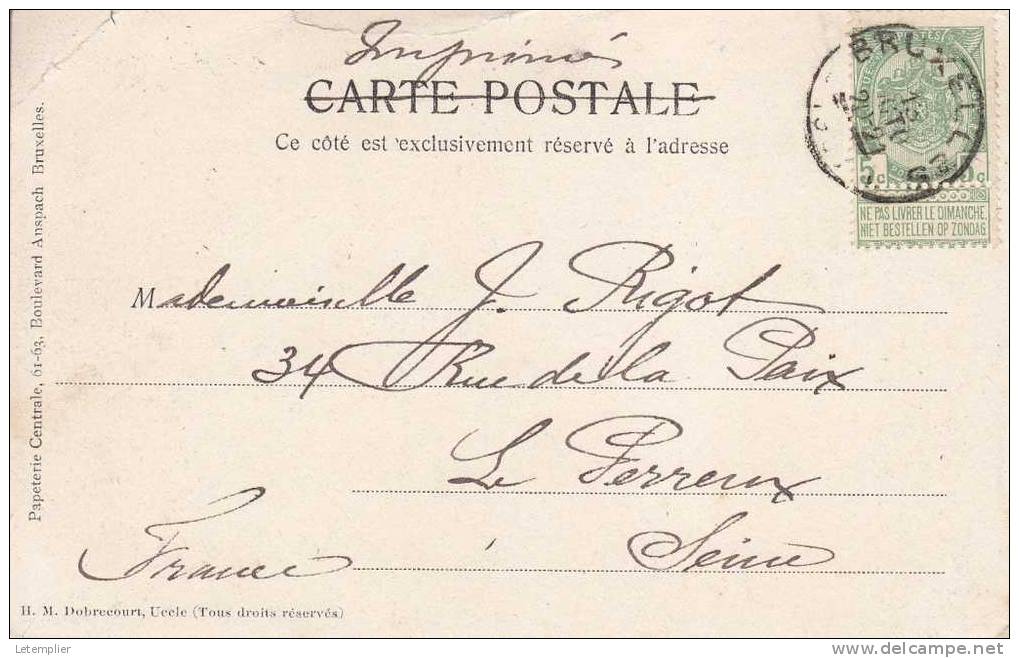 Imprimés
CARTE POSTALE
Ce côté est exclusivement réservé à l'adresse
BRUXELLES
5c 5c
NE PAS LIVRER LE DIMANCHE
NIET BESTELLEN OP ZONDAG
Mademoiselle J. Rigot
34 Rue de la Paix
Le Perreux
Seine
France
Papeterie Centrale, 61-63, Boulevard Anspach Bruxelles.
H. M. Dobrecourt, Uccle (Tous droits réservés)
Letemplier
www.delcampe.net